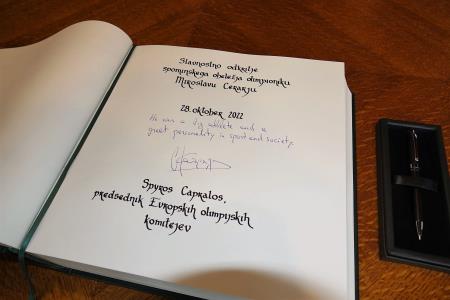 Slavnostno odkritje
spominskega obeležja olimpioniku
Miroslavu Cerarju
28. oktober 2022
He was a big athlete and a
great personality in sport and society.
Spyros Capralos,
predsednik Evropskih olimpijskih
komitejev